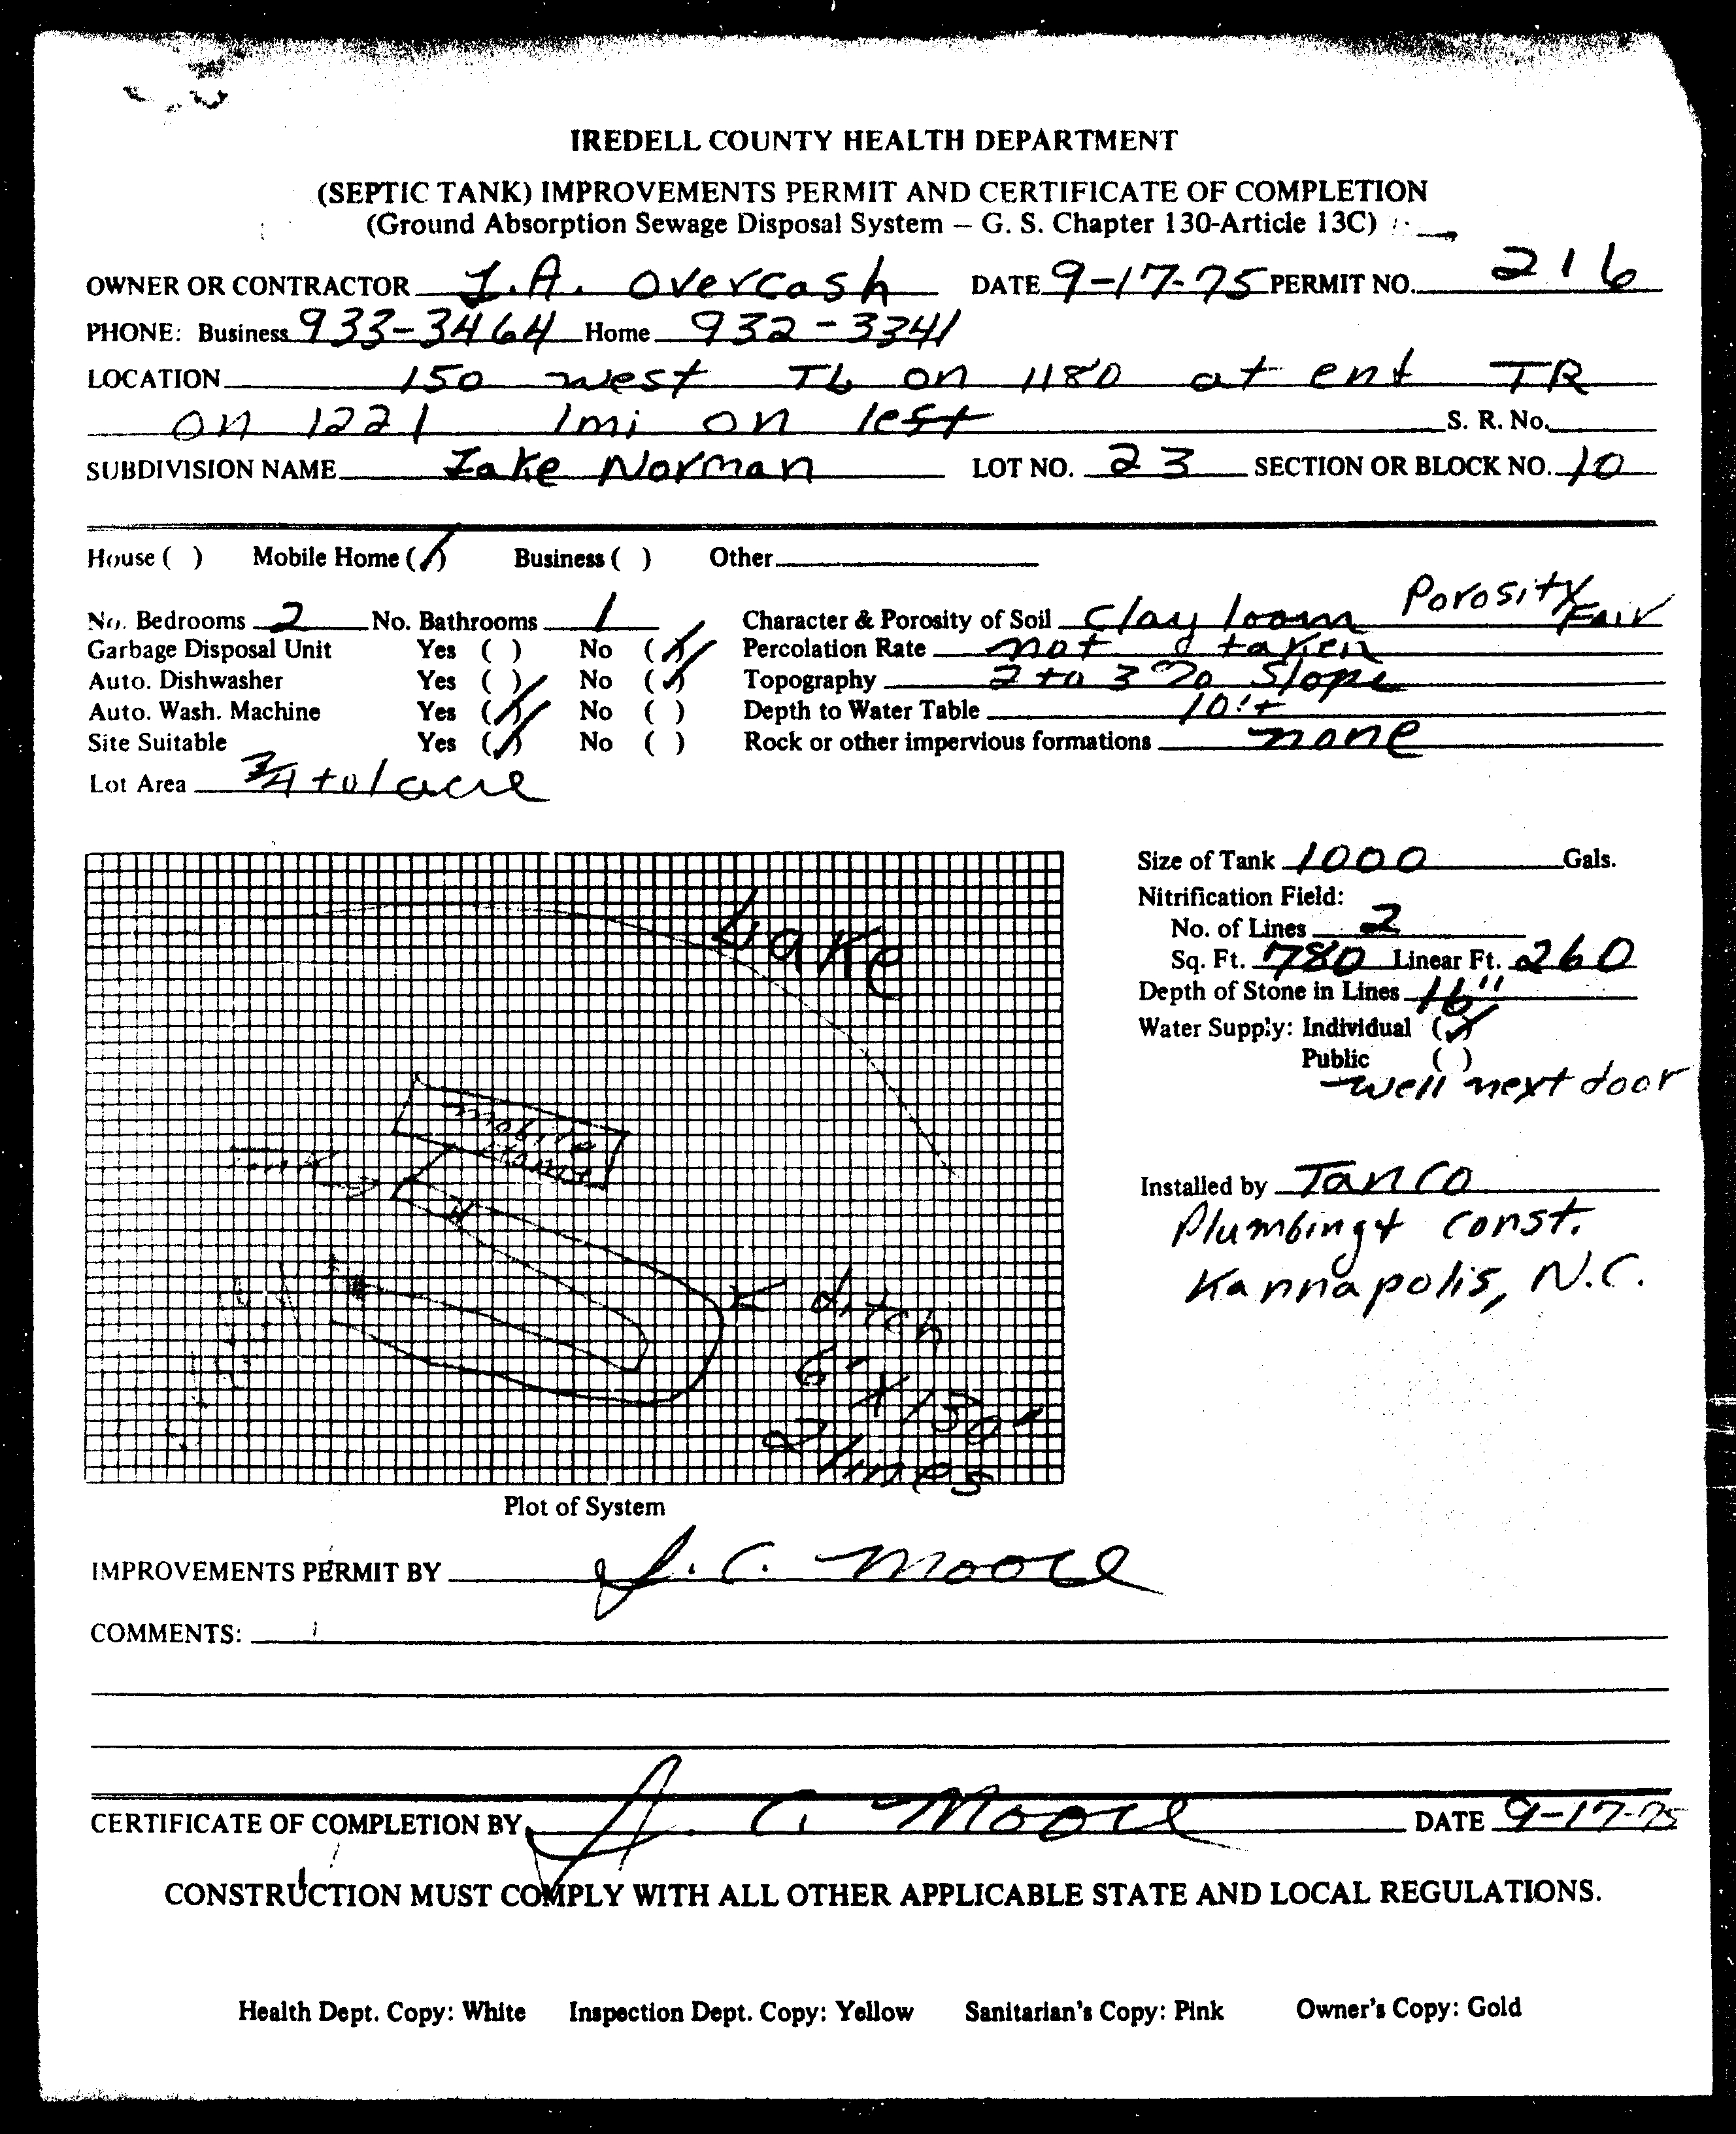 IREDELL COUNTY HEALTH DEPARTMENT
(SEPTIC TANK) IMPROVEMENTS PERMIT AND CERTIFICATE OF COMPLETION
(Ground Absorption Sewage Disposal System – G. S. Chapter 130-Article 13C)
OWNER OR CONTRACTOR L.A. Overcash DATE 9-17-75 PERMIT NO. 216
PHONE: Business 933-3464 Home 932-3341
LOCATION 150 west TL on 1180 at ent TR
on 1221 1mi on left S. R. No.
SUBDIVISION NAME Lake Norman LOT NO. 23 SECTION OR BLOCK NO. 10
House ( ) Mobile Home (✓) Business ( ) Other
No. Bedrooms 2 No. Bathrooms 1 Character & Porosity of Soil Clay loam Porosity Fair
Garbage Disposal Unit Yes ( ) No (✓) Percolation Rate not taken
Auto. Dishwasher Yes ( ) No (✓) Topography 2 to 3 % Slope
Auto. Wash. Machine Yes (✓) No ( ) Depth to Water Table 10'+
Site Suitable Yes (✓) No ( ) Rock or other impervious formations none
Lot Area 3/4 to 1 acre
Size of Tank 1000 Gals.
Nitrification Field:
No. of Lines 2
Sq. Ft. 780 Linear Ft. 260
Depth of Stone in Lines 16"
Water Supply: Individual (✓)
Public ( )
well next door
Installed by Tanco
Plumbing & Const.
Kannapolis, N.C.
Lake
mobile
Home
Tank
ditch
6" x 130'
2 lines
Plot of System
IMPROVEMENTS PERMIT BY J. C. Moore
COMMENTS:
CERTIFICATE OF COMPLETION BY J. C. Moore DATE 9-17-75
CONSTRUCTION MUST COMPLY WITH ALL OTHER APPLICABLE STATE AND LOCAL REGULATIONS.
Health Dept. Copy: White Inspection Dept. Copy: Yellow Sanitarian's Copy: Pink Owner's Copy: Gold